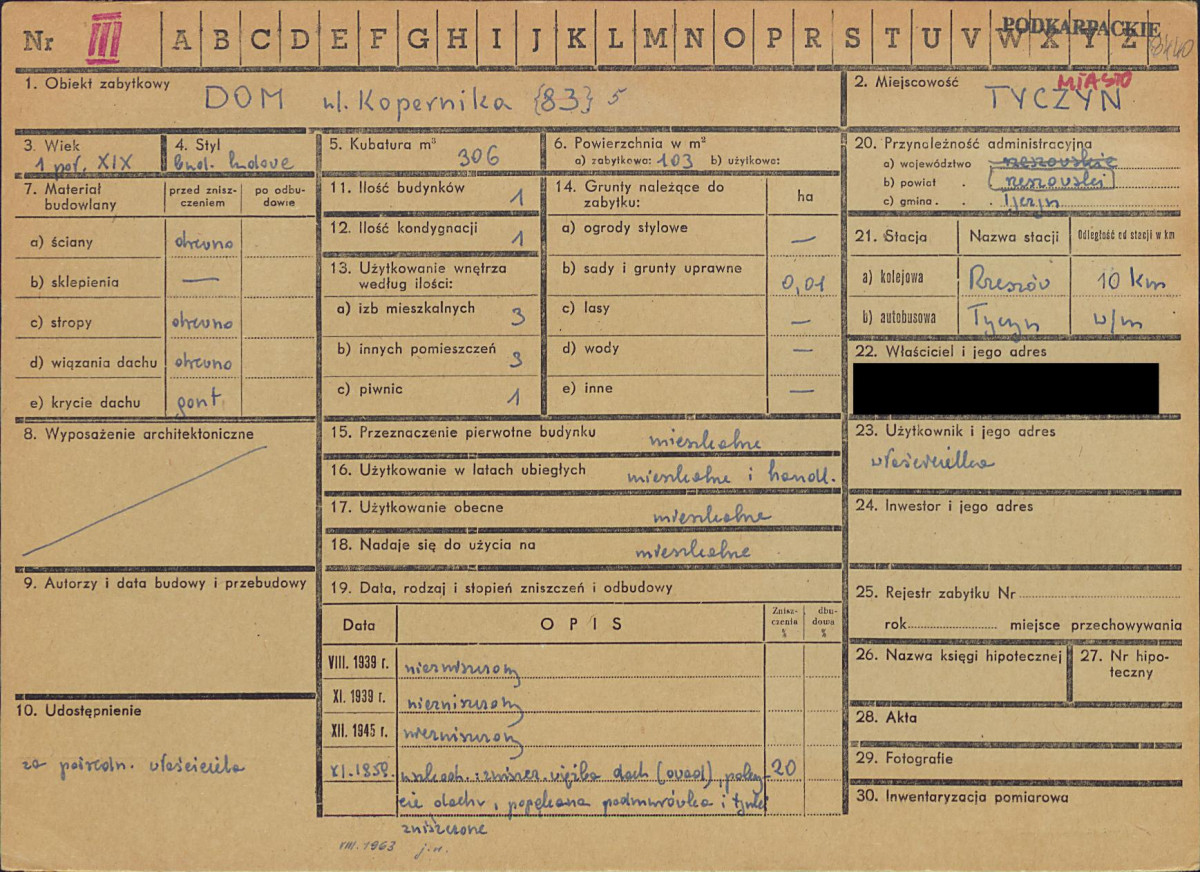 Nr III A B C D E F G H I J K L M N O P R S T U V W X Y Z PODKARPACKIE
1. Obiekt zabytkowy DOM ul. Kopernika {83} 5
2. Miejscowość TYCZYN MIASTO
3. Wiek 1 poł. XIX
4. Styl bud. ludowe
5. Kubatura m³ 306
6. Powierzchnia w m²
a) zabytkowa: 103 b) użytkowa:
7. Materiał budowlany
przed zniszczeniem
po odbudowie
a) ściany drewno
b) sklepienia —
c) stropy drewno
d) wiązania dachu drewno
e) krycie dachu gont
8. Wyposażenie architektoniczne
9. Autorzy i data budowy i przebudowy
10. Udostępnienie
za pośredn. właściciela
11. Ilość budynków 1
12. Ilość kondygnacji 1
13. Użytkowanie wnętrza
według ilości:
a) izb mieszkalnych 3
b) innych pomieszczeń 3
c) piwnic 1
14. Grunty należące do
zabytku:
ha
a) ogrody stylowe —
b) sady i grunty uprawne 0,01
c) lasy —
d) wody —
e) inne —
15. Przeznaczenie pierwotne budynku mieszkalne
16. Użytkowanie w latach ubiegłych mieszkalne i handl.
17. Użytkowanie obecne mieszkalne
18. Nadaje się do użycia na mieszkalne
19. Data, rodzaj i stopień zniszczeń i odbudowy
Data OPIS Zniszczenia % dbudowa %
VIII. 1939 r. niezniszczony
XI. 1939 r. niezniszczony
XII. 1945 r. niezniszczony
XI.1959. zniszcz. więźba dach (owad), pokry- 20
cie dachu, popękana podmurówka i tynki
zniszczone
VIII.1963
20. Przynależność administracyjna
a) województwo rzeszowskie
b) powiat rzeszowski
c) gmina Tyczyn
21. Stacja Nazwa stacji Odległość od stacji w km
a) kolejowa Rzeszów 10 km
b) autobusowa Tyczyn w/m
22. Właściciel i jego adres
23. Użytkownik i jego adres
właścicielka
24. Inwestor i jego adres
25. Rejestr zabytku Nr
rok miejsce przechowywania
26. Nazwa księgi hipotecznej
27. Nr hipoteczny
28. Akta
29. Fotografie
30. Inwentaryzacja pomiarowa